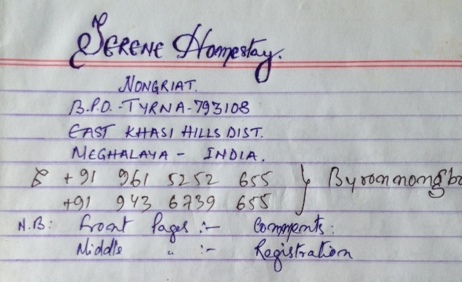 Serene Homestay.
NONGRIAT.
B.P.O.-TYRNA-793108
EAST KHASI HILLS DIST.
MEGHALAYA - INDIA.
+91 961 5252 655
+91 943 6739 655
N.B: Front Pages :- Comments:
Middle " :- Registration